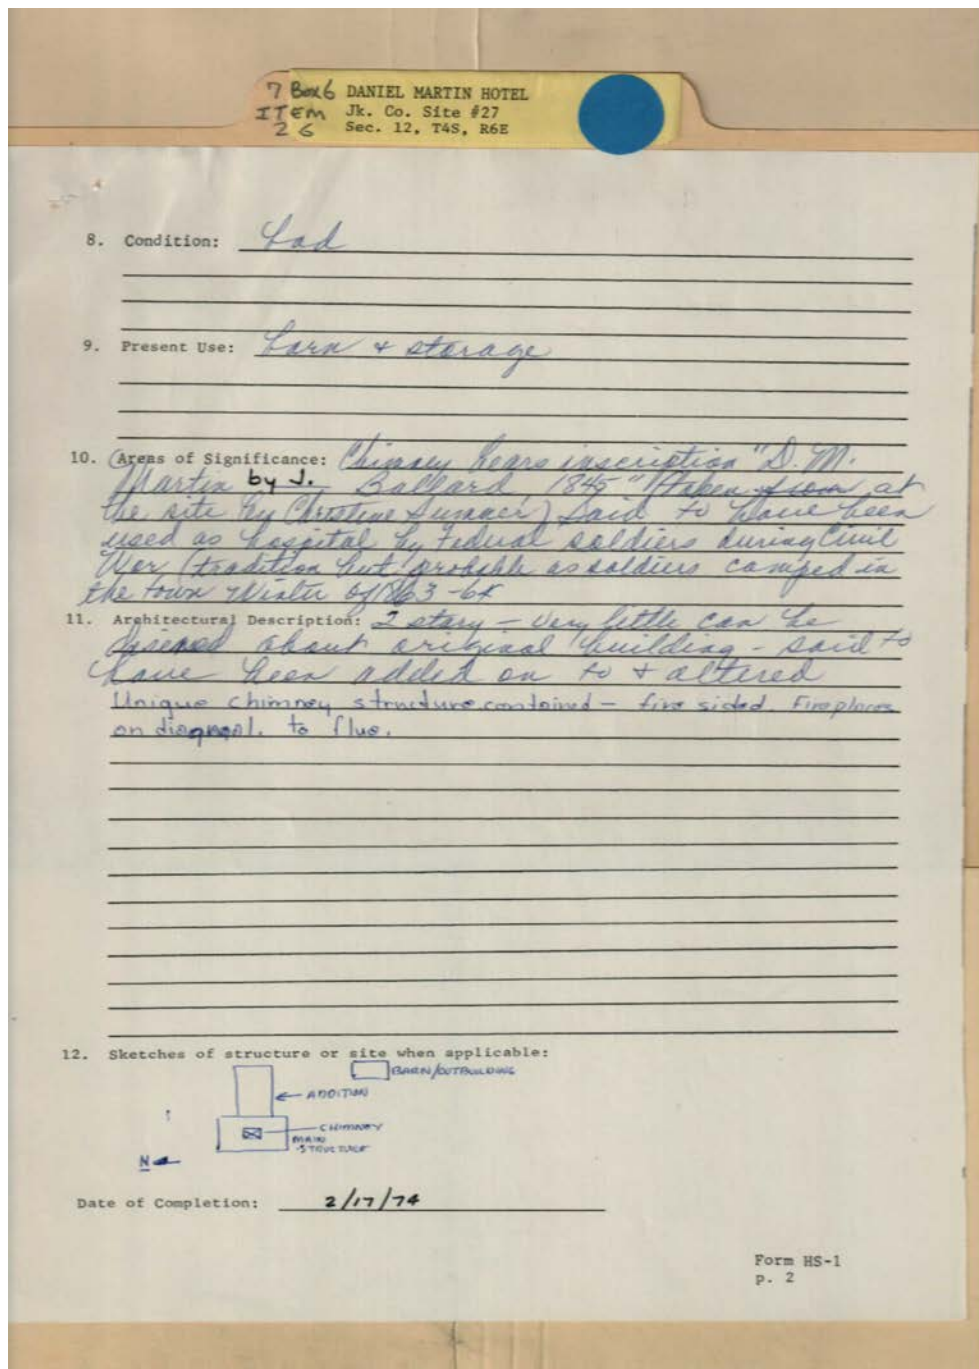 7 Box 6 DANIEL MARTIN HOTEL
ITEM Jk. Co. Site #27
26 Sec. 12, T4S, R6E
8. Condition: bad
9. Present Use: barn + storage
10. (Areas of Significance: Chimney bears inscription "D. M.
Martin by J. Ballard, 1845" (taken from at
the site by Christine Sumner) Said to have been
used as hospital by Federal soldiers during Civil
War (tradition but probable as soldiers camped in
the town Winter of 1863-64
11. Architectural Description: 2 story - Very little can be
about original building - said to
have been added on to + altered
Unique chimney structure contained - five sided. Fireplaces
on diagonal. to flue.
12. Sketches of structure or site when applicable:
BARN/OUTBUILDING
ADDITION
CHIMNEY
MAIN
STRUCTURE
N
Date of Completion: 2/17/74
Form HS-1
p. 2